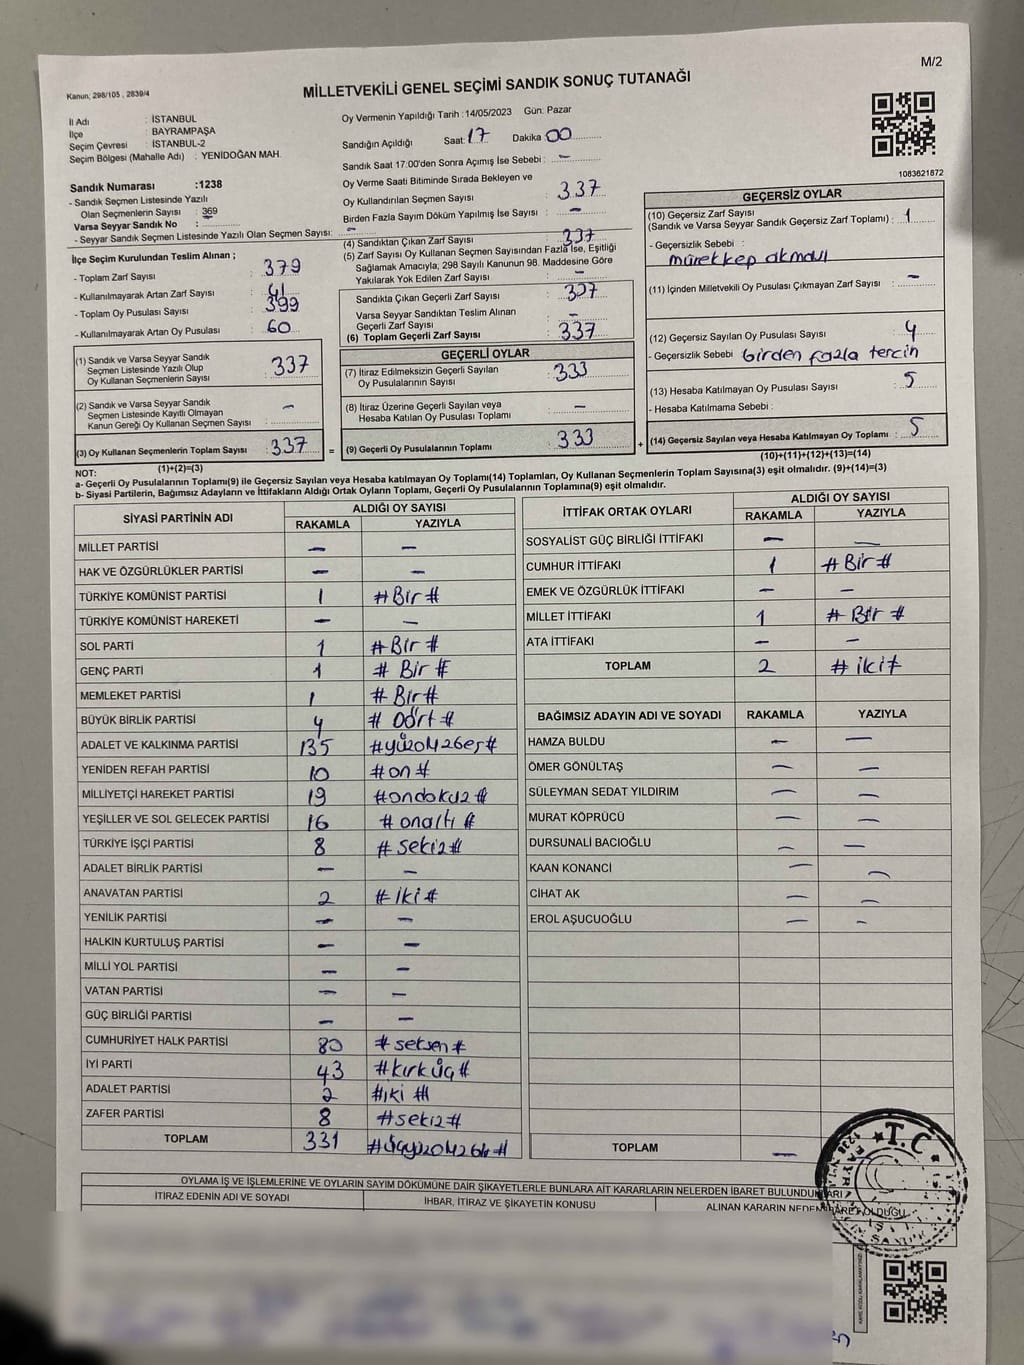 M/2
Kanun: 298/105 , 2839/4
MİLLETVEKİLİ GENEL SEÇİMİ SANDIK SONUÇ TUTANAĞI
İl Adı : İSTANBUL
İlçe : BAYRAMPAŞA
Seçim Çevresi : İSTANBUL-2
Seçim Bölgesi (Mahalle Adı) : YENİDOĞAN MAH.
Sandık Numarası :1238
- Sandık Seçmen Listesinde Yazılı
Olan Seçmenlerin Sayısı : 369
Varsa Seyyar Sandık No :
- Seyyar Sandık Seçmen Listesinde Yazılı Olan Seçmen Sayısı: –
Oy Vermenin Yapıldığı Tarih :14/05/2023 Gün: Pazar
Sandığın Açıldığı Saat: 17 Dakika: 00
Sandık Saat 17:00'den Sonra Açımış İse Sebebi : –
Oy Verme Saati Bitiminde Sırada Bekleyen ve
Oy Kullandırılan Seçmen Sayısı : 337
Birden Fazla Sayım Döküm Yapılmış İse Sayısı : –
(4) Sandıktan Çıkan Zarf Sayısı : 337
(5) Zarf Sayısı Oy Kullanan Seçmen Sayısından Fazla İse, Eşitliği
Sağlamak Amacıyla, 298 Sayılı Kanunun 98. Maddesine Göre
Yakılarak Yok Edilen Zarf Sayısı : –
1083621872
İlçe Seçim Kurulundan Teslim Alınan ;
- Toplam Zarf Sayısı : 379
- Kullanılmayarak Artan Zarf Sayısı : 41
- Toplam Oy Pusulası Sayısı : 399
- Kullanılmayarak Artan Oy Pusulası : 60
(1) Sandık ve Varsa Seyyar Sandık
Seçmen Listesinde Yazılı Olup
Oy Kullanan Seçmenlerin Sayısı : 337
(2) Sandık ve Varsa Seyyar Sandık
Seçmen Listesinde Kayıtlı Olmayan
Kanun Gereği Oy Kullanan Seçmen Sayısı : –
(3) Oy Kullanan Seçmenlerin Toplam Sayısı : 337
(1)+(2)=(3)
Sandıkta Çıkan Geçerli Zarf Sayısı : 337
Varsa Seyyar Sandıktan Teslim Alınan
Geçerli Zarf Sayısı : –
(6) Toplam Geçerli Zarf Sayısı : 337
GEÇERLİ OYLAR
(7) İtiraz Edilmeksizin Geçerli Sayılan
Oy Pusulalarının Sayısı : 333
(8) İtiraz Üzerine Geçerli Sayılan veya
Hesaba Katılan Oy Pusulası Toplamı : –
= (9) Geçerli Oy Pusulalarının Toplamı : 333
GEÇERSİZ OYLAR
(10) Geçersiz Zarf Sayısı
(Sandık ve Varsa Seyyar Sandık Geçersiz Zarf Toplamı) : 1
- Geçersizlik Sebebi :
mürekkep akmalıl
(11) İçinden Milletvekili Oy Pusulası Çıkmayan Zarf Sayısı : –
(12) Geçersiz Sayılan Oy Pusulası Sayısı : 4
- Geçersizlik Sebebi birden fazla tercih
(13) Hesaba Katılmayan Oy Pusulası Sayısı : 5
- Hesaba Katılmama Sebebi :
+ (14) Geçersiz Sayılan veya Hesaba Katılmayan Oy Toplamı : 5
(10)+(11)+(12)+(13)=(14)
NOT:
a- Geçerli Oy Pusulalarının Toplamı(9) ile Geçersiz Sayılan veya Hesaba katılmayan Oy Toplamı(14) Toplamları, Oy Kullanan Seçmenlerin Toplam Sayısına(3) eşit olmalıdır. (9)+(14)=(3)
b- Siyasi Partilerin, Bağımsız Adayların ve İttifakların Aldığı Ortak Oyların Toplamı, Geçerli Oy Pusulalarının Toplamına(9) eşit olmalıdır.
SİYASİ PARTİNİN ADI ALDIĞI OY SAYISI
RAKAMLA YAZIYLA
MİLLET PARTİSİ – –
HAK VE ÖZGÜRLÜKLER PARTİSİ – –
TÜRKİYE KOMÜNİST PARTİSİ 1 #Bir#
TÜRKİYE KOMÜNİST HAREKETİ – –
SOL PARTİ 1 #Bir#
GENÇ PARTİ 1 #Bir#
MEMLEKET PARTİSİ 1 #Bir#
BÜYÜK BİRLİK PARTİSİ 4 #Dört#
ADALET VE KALKINMA PARTİSİ 135
YENİDEN REFAH PARTİSİ 10 #on#
MİLLİYETÇİ HAREKET PARTİSİ 19 #ondokuz#
YEŞİLLER VE SOL GELECEK PARTİSİ 16 #onaltı#
TÜRKİYE İŞÇİ PARTİSİ 8 #sekiz#
ADALET BİRLİK PARTİSİ – –
ANAVATAN PARTİSİ 2 #iki#
YENİLİK PARTİSİ – –
HALKIN KURTULUŞ PARTİSİ – –
MİLLİ YOL PARTİSİ – –
VATAN PARTİSİ – –
GÜÇ BİRLİĞİ PARTİSİ – –
CUMHURİYET HALK PARTİSİ 80 #seksen#
İYİ PARTİ 43 #kırküç#
ADALET PARTİSİ 2 #iki#
ZAFER PARTİSİ 8 #sekiz#
TOPLAM 331
İTTİFAK ORTAK OYLARI ALDIĞI OY SAYISI
RAKAMLA YAZIYLA
SOSYALİST GÜÇ BİRLİĞİ İTTİFAKI – –
CUMHUR İTTİFAKI 1 #Bir#
EMEK VE ÖZGÜRLÜK İTTİFAKI – –
MİLLET İTTİFAKI 1 #Bir#
ATA İTTİFAKI – –
TOPLAM 2 #iki#
BAĞIMSIZ ADAYIN ADI VE SOYADI RAKAMLA YAZIYLA
HAMZA BULDU – –
ÖMER GÖNÜLTAŞ – –
SÜLEYMAN SEDAT YILDIRIM – –
MURAT KÖPRÜCÜ – –
DURSUNALİ BACIOĞLU – –
KAAN KONANCİ – –
CİHAT AK – –
EROL AŞUCUOĞLU – –
TOPLAM –
T.C
OYLAMA İŞ VE İŞLEMLERİNE VE OYLARIN SAYIM DÖKÜMÜNE DAİR ŞİKAYETLERLE BUNLARA AİT KARARLARIN NELERDEN İBARET BULUNDUKLARI
İTİRAZ EDENİN ADI VE SOYADI İHBAR, İTİRAZ VE ŞİKAYETİN KONUSU ALINAN KARARIN NEDEN İBARET OLDUĞU